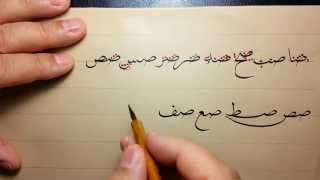 صا صب صح صد صر صر صس صص
صص صط صع صف